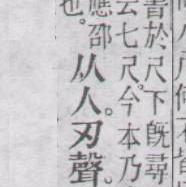 書於尺下旣尋
云七尺。今本乃
應邵
也。
从人。刃聲。